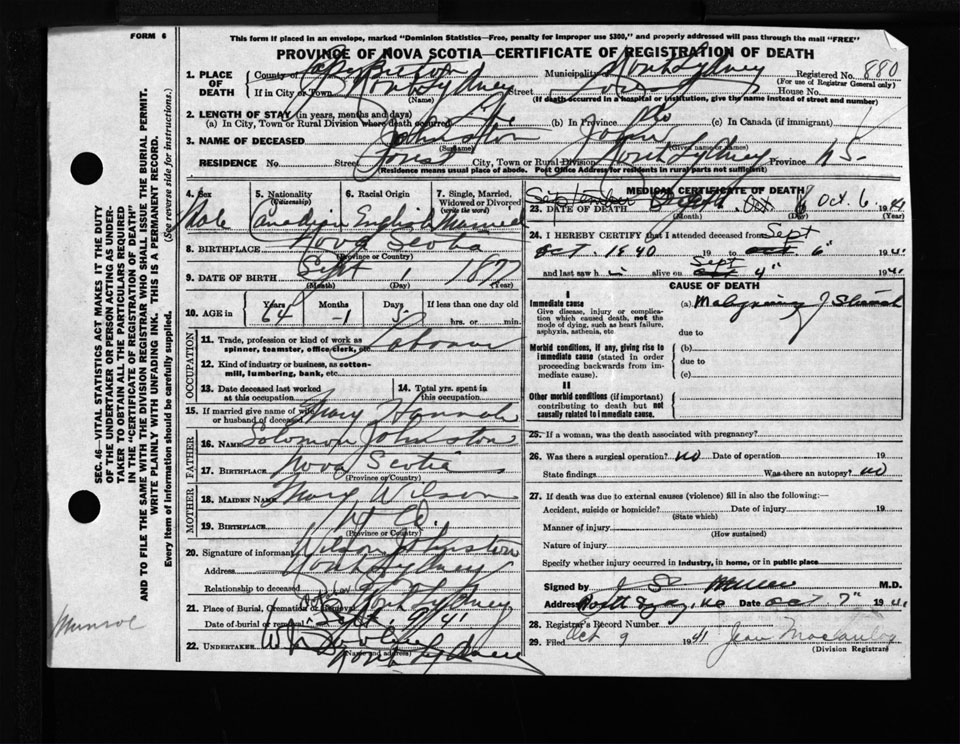 FORM 6
This form if placed in an envelope, marked "Dominion Statistics—Free, penalty for improper use $300," and properly addressed will pass through the mail "FREE"
PROVINCE OF NOVA SCOTIA—CERTIFICATE OF REGISTRATION OF DEATH
1. PLACE OF DEATH
County of Cape Breton Municipality North Sydney Registered No. 880
(For use of Registrar General only)
If in City or Town North Sydney Street House No.
(Name) (If death occurred in a hospital or institution, give the name instead of street and number)
2. LENGTH OF STAY (in years, months and days)
(a) In City, Town or Rural Division where death occurred Life (b) In Province Do (c) In Canada (if immigrant)
3. NAME OF DECEASED Johnston John
(Surname) (Given name or names)
RESIDENCE No. Street Forest City, Town or Rural Division North Sydney Province N S.
(Residence means usual place of abode. Post Office Address for residents in rural parts not sufficient)
4. Sex Male
5. Nationality (Citizenship) Canadian
6. Racial Origin English
7. Single, Married, Widowed or Divorced (write the word) Married
8. BIRTHPLACE Nova Scotia
(Province or Country)
9. DATE OF BIRTH Sept 1 1877
(Month) (Day) (Year)
10. AGE in Years 64 Months 1 Days 5 If less than one day old
hrs. or min.
OCCUPATION
11. Trade, profession or kind of work as spinner, teamster, office clerk, etc. Labourer
12. Kind of industry or business, as cotton-mill, lumbering, bank, etc.
13. Date deceased last worked at this occupation
14. Total yrs. spent in this occupation
15. If married give name of wife or husband of deceased Mary Hannah
FATHER
16. NAME Solomon Johnston
17. BIRTHPLACE Nova Scotia
(Province or Country)
MOTHER
18. MAIDEN NAME Mary Wilson
19. BIRTHPLACE
(Province or Country)
20. Signature of informant Wilson Johnston
Address North Sydney
Relationship to deceased Son
21. Place of Burial, Cremation or Removal North Sydney
Date of burial or removal Sept 9/41
22. UNDERTAKER
North Sydney
(Name and address)
MEDICAL CERTIFICATE OF DEATH
23. DATE OF DEATH September Oct. 6 1941
(Month) (Day) (Year)
24. I HEREBY CERTIFY that I attended deceased from Sept
Oct. 1940 19 to Oct. 6" 1941
and last saw h alive on Sept 4" 1941
CAUSE OF DEATH
I
Immediate cause
Give disease, injury or complication which caused death, not the mode of dying, such as heart failure, asphyxia, asthenia, etc.
(a) Malignancy of Stomach
due to
Morbid conditions, if any, giving rise to immediate cause (stated in order proceeding backwards from immediate cause).
(b)
due to
(c)
II
Other morbid conditions (if important) contributing to death but not causally related to immediate cause.
25. If a woman, was the death associated with pregnancy?
26. Was there a surgical operation? no Date of operation 19
State findings Was there an autopsy? no
27. If death was due to external causes (violence) fill in also the following:—
Accident, suicide or homicide? Date of injury 19
(State which)
Manner of injury
(How sustained)
Nature of injury
Specify whether injury occurred in Industry, in home, or in public place
Signed by M.D.
Address North Sydney, NS Date Oct 7" 1941
28. Registrar's Record Number
29. Filed Oct 9 1941 Jean
(Division Registrar)
SEC. 46—VITAL STATISTICS ACT MAKES IT THE DUTY
OF THE UNDERTAKER OR PERSON ACTING AS UNDER-
TAKER TO OBTAIN ALL THE PARTICULARS REQUIRED
IN THE "CERTIFICATE OF REGISTRATION OF DEATH"
AND TO FILE THE SAME WITH THE DIVISION REGISTRAR WHO SHALL ISSUE THE BURIAL PERMIT.
WRITE PLAINLY WITH UNFADING INK. THIS IS A PERMANENT RECORD.
Every item of Information should be carefully supplied. (See reverse side for instructions.)
Munroe